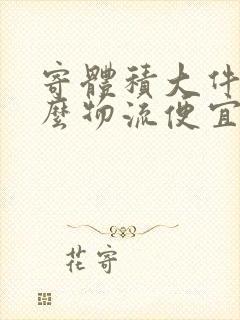 寄體積大件
麼物流便宜
花寄